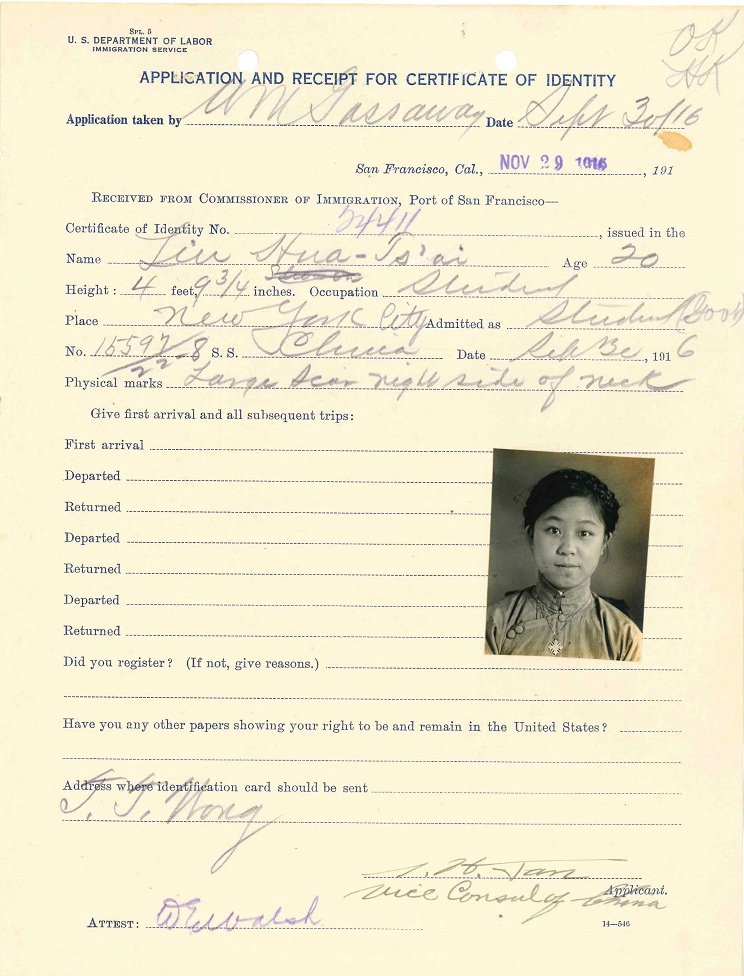 Spl. 5
U. S. DEPARTMENT OF LABOR
IMMIGRATION SERVICE
OK
APPLICATION AND RECEIPT FOR CERTIFICATE OF IDENTITY
Application taken by Wm Gassaway Date Sept 30/16
San Francisco, Cal., NOV 29 1916, 191
RECEIVED FROM COMMISSIONER OF IMMIGRATION, Port of San Francisco—
Certificate of Identity No. 24411, issued in the
Name Liu Hua-Ts'ai Age 20
Height: 4 feet, 9 3/4 inches. Occupation Student
Place New York City Admitted as Student
No. 15597/22-8 S. S. China Date Sep 30, 1916
Physical marks Large scar right side of neck
Give first arrival and all subsequent trips:
First arrival
Departed
Returned
Departed
Returned
Departed
Returned
Did you register? (If not, give reasons.)
Have you any other papers showing your right to be and remain in the United States?
Address where identification card should be sent
T. T. Wong
Applicant.
Vice Consul of China
ATTEST: DEWalsh
14—546